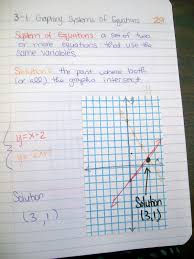 3-1 Graphing Systems of Equations 29
System of Equations: a set of two
or more equations that use the
same variables.
Solution: the point where both
(or all), the graphs intersect.
y=x-2
Solution
(3,1)
Solution
(3,1)